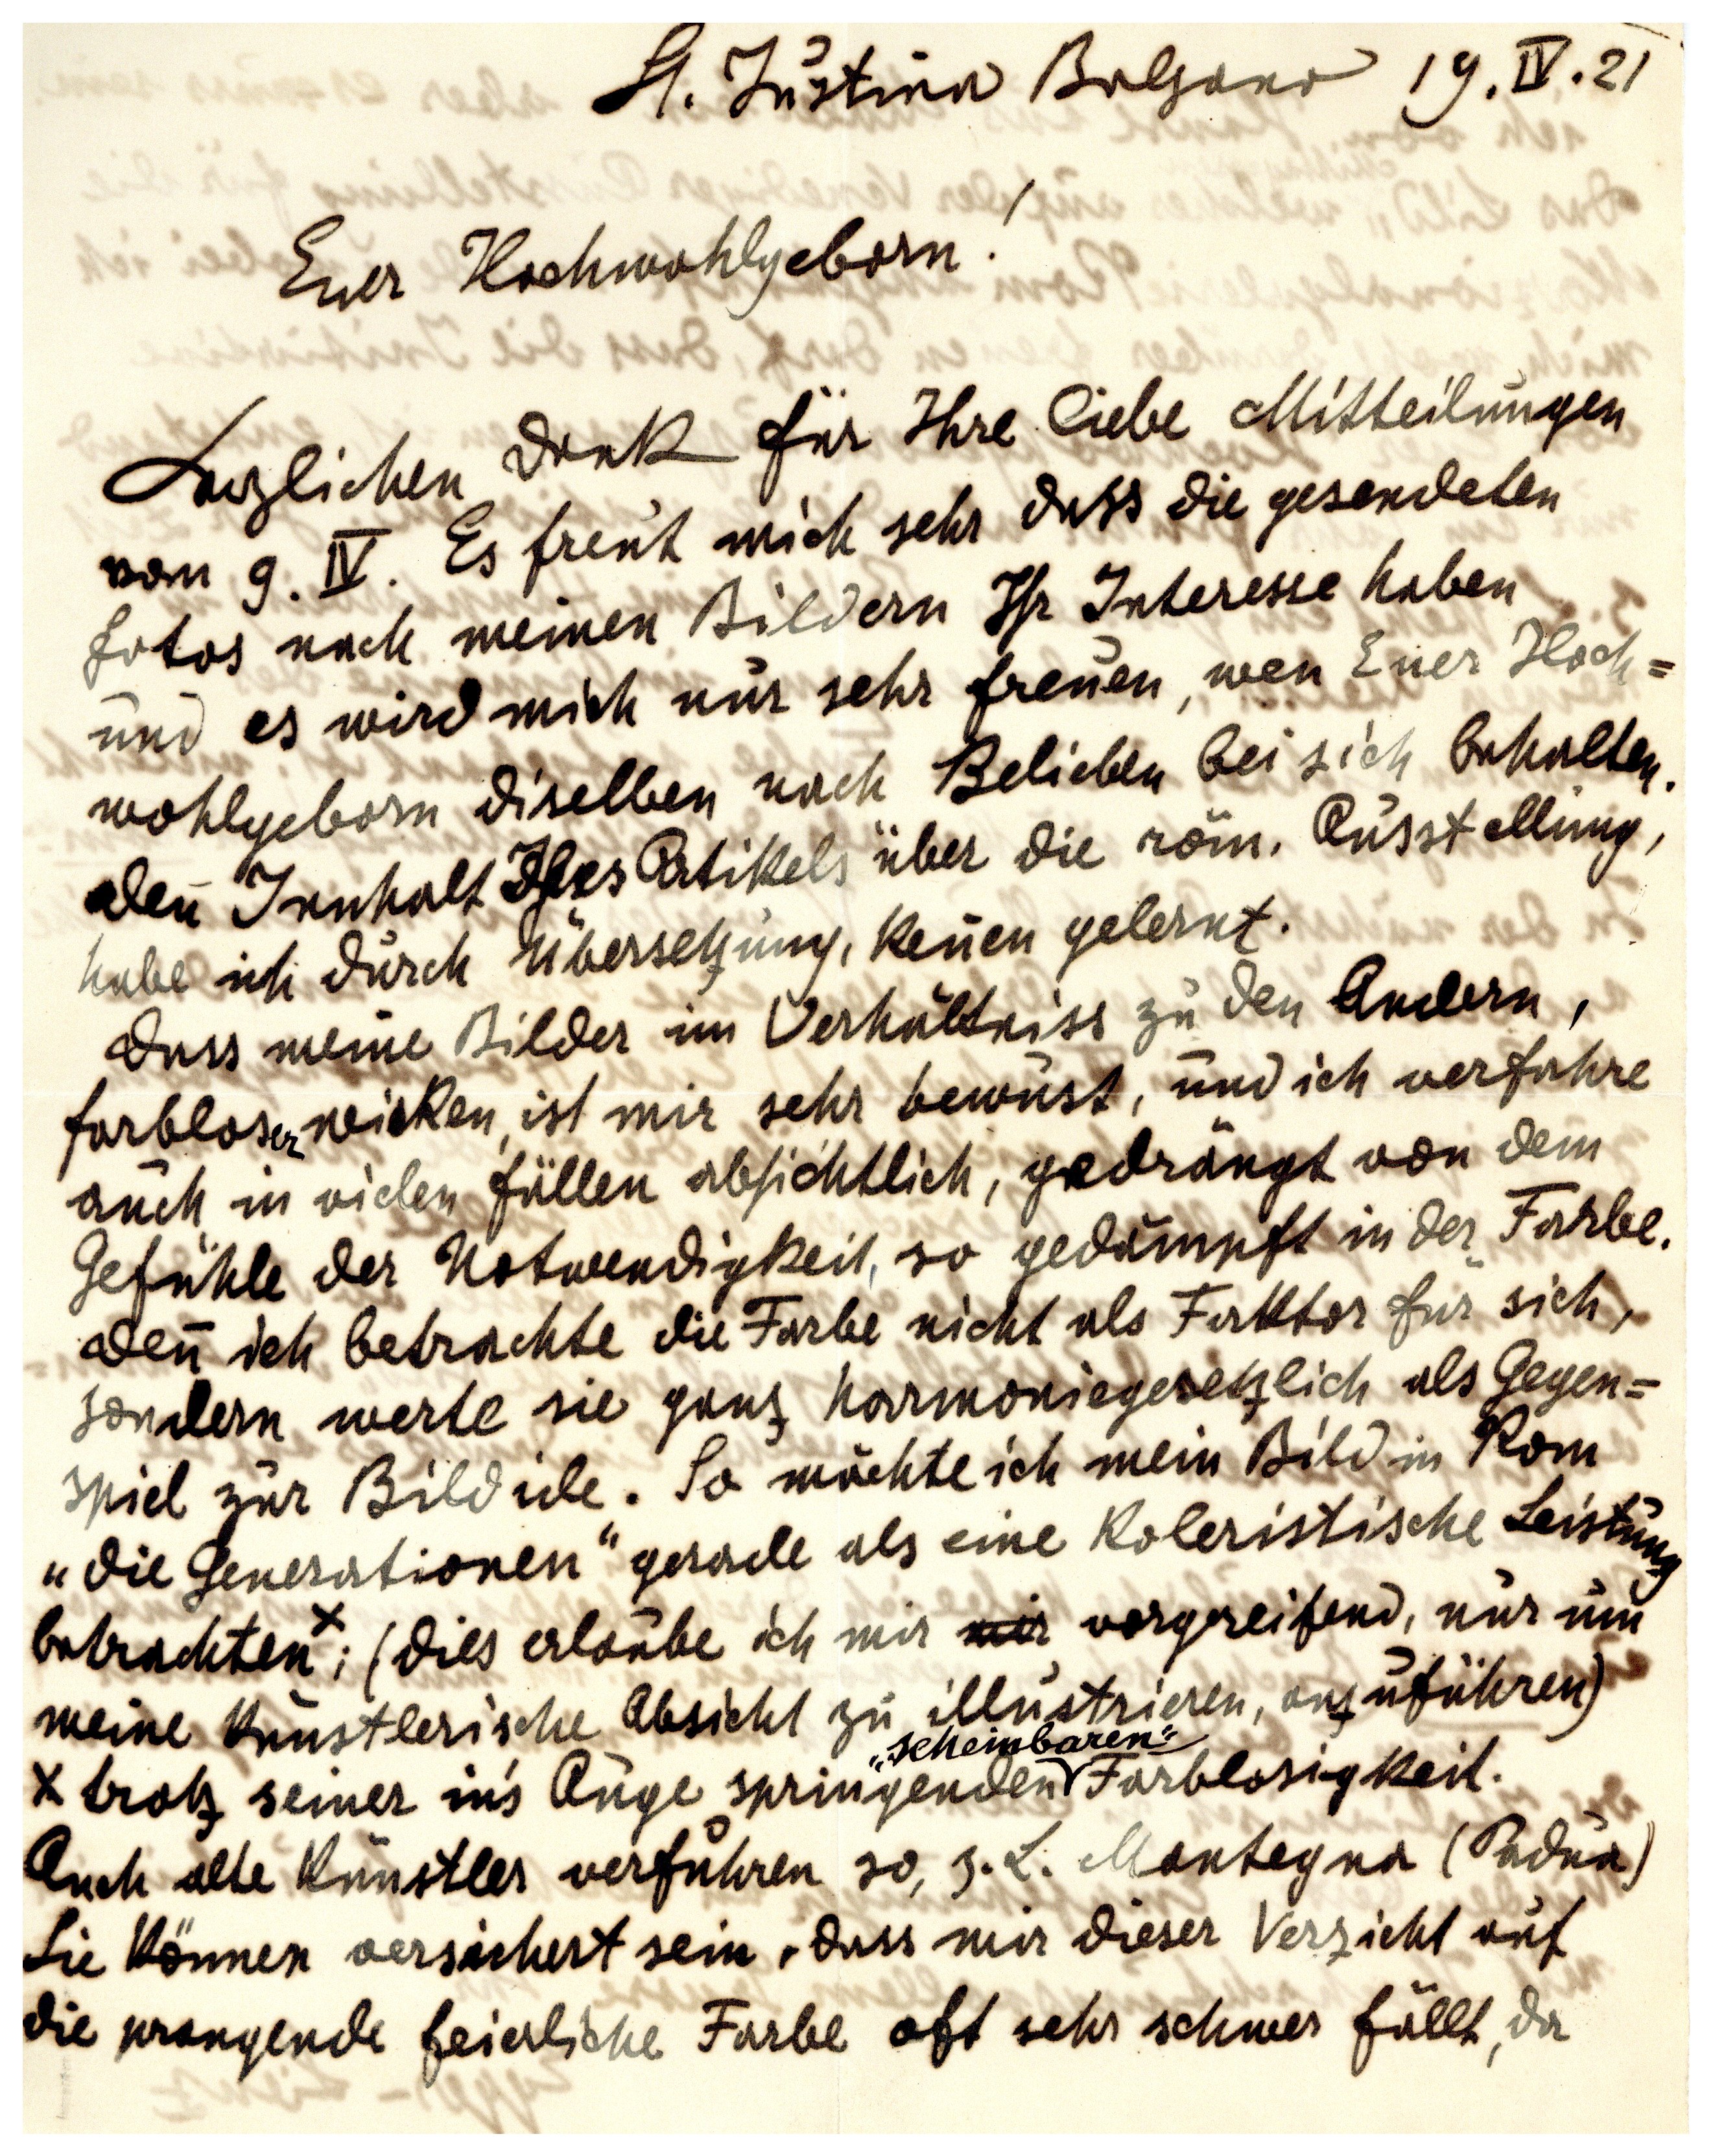 St. Justina Bolzano 19. IV. 21
Euer Hochwohlgeborn!
Herzlichen Dank für Ihre liebe Mitteilungen
vom 9. IV. Es freut mich sehr dass die gesendeten
Fotos nach meinen Bildern Ihr Interesse haben
und es wird mich nur sehr freuen, wen Euer Hoch=
wohlgeborn diselben nach Belieben bei sich behalten.
Den̄ Innhalt Ihres Artikels über die röm. Ausstellung,
habe ich durch Übersetzung, ken̄en gelernt.
Dass meine Bilder im Verhältniss zu den Andern,
farbloser wirken, ist mir sehr bewust, und ich verfahre
auch in vielen fällen absichtlich, gedrängt von dem
Gefühle der Notwendigkeit, so gedämpft in der Farbe.
Den̄ ich betrachte die Farbe nicht als Faktor für sich,
sondern werte sie ganz harmoniegesetzlich als Gegen=
spiel zur Bildide. So möchte ich mein Bild in Rom
"die Generationen" gerade als eine Koleristische Leistung
betrachten x; (dies erlaube ich mir mir vorgreifend, nur um
meine Künstlerische Absicht zu illustrieren, anzuführen)
x trotz seiner in's Auge springenden "scheinbaren" Farblosigkeit.
Auch alte Künstler verfuhren so, z. B. Mantegna (Padua)
Sie können versichert sein, dass mir dieser Verzicht auf
die prangende feierliche Farbe oft sehr schwer fällt, da